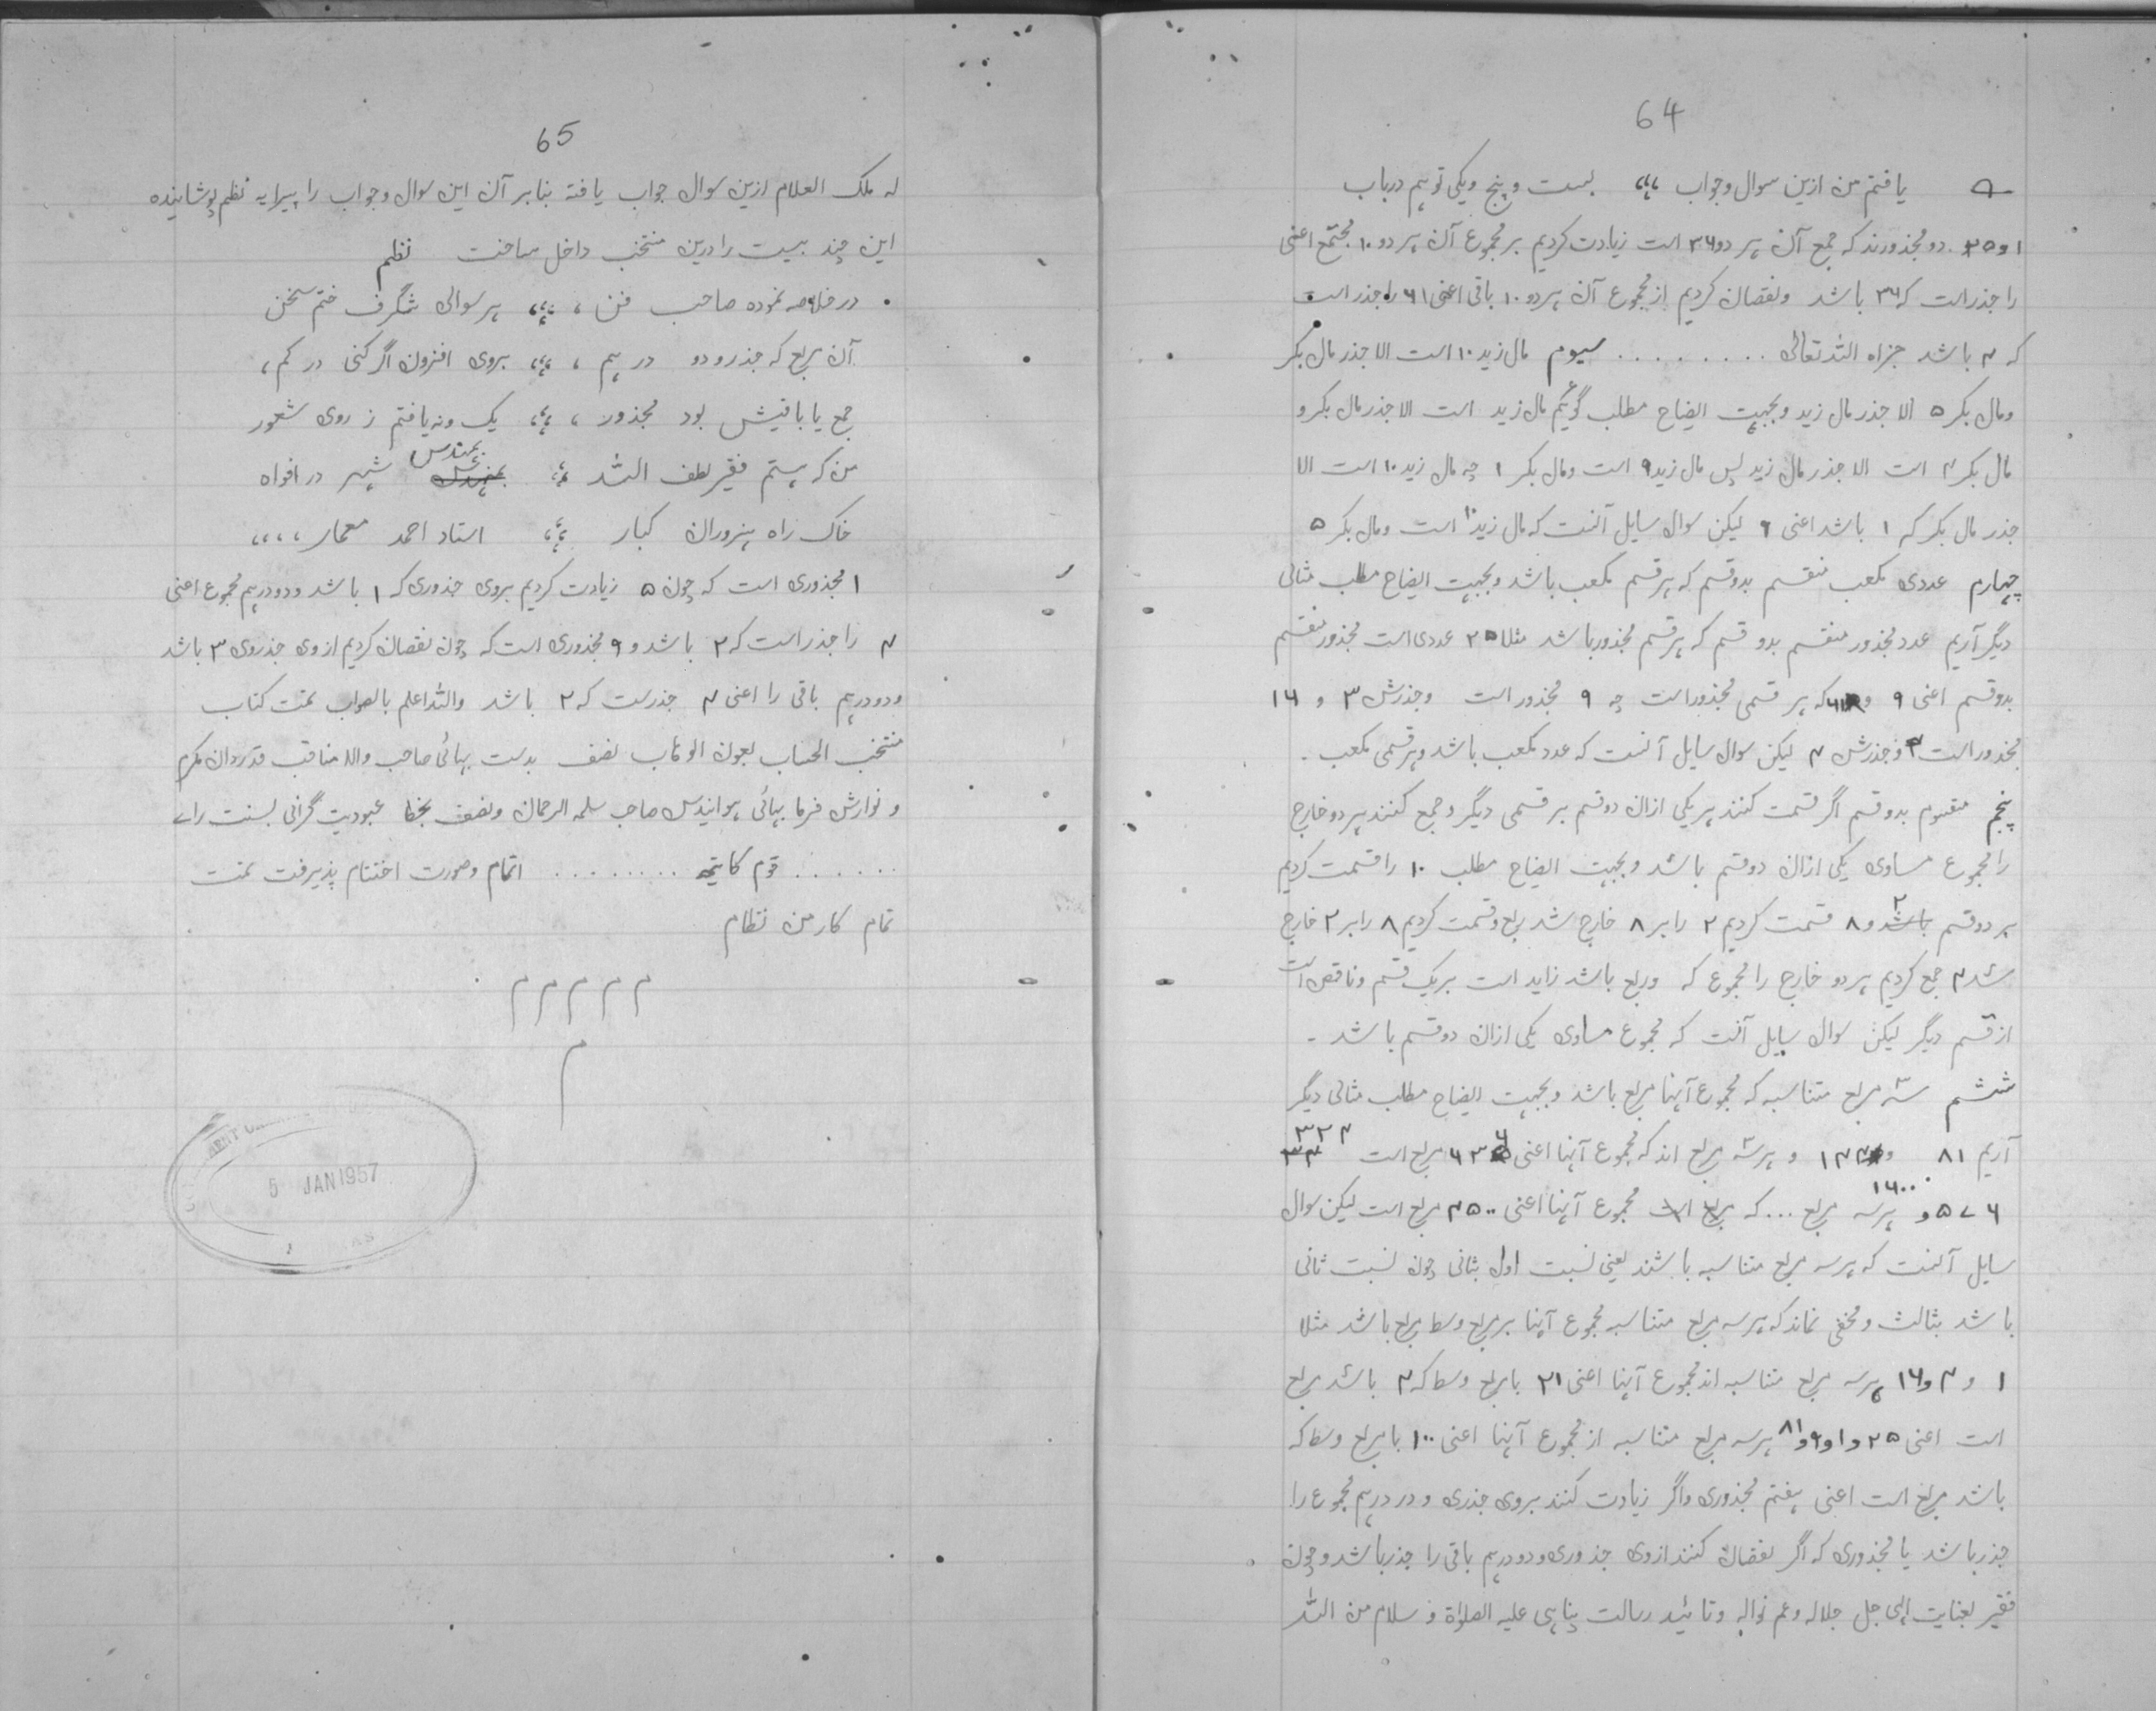 64
یافتم من ازین سوال و جواب ؛؛ بست و پنج و یکی تو هم دریاب
۱ و ۲۵ دو مجذورند که جمع آن هر دو ۲۶ است زیادت کردیم بر مجموع آن هر دو ۱۰ مجتمع اعنی
را جذر است که ۳۶ باشد و نقصان کردیم از مجموع آن هر دو ۱۰ باقی اعنی ۱۶ را جذر است
که ۴ باشد جزاه الله تعالی ........ سیوم مال زید ۱۰ است الا جذر مال بکر
و مال بکر ۵ الا جذر مال زید و بجهت ایضاح مطلب گوئیم مال زید است الا جذر مال بکر و
مال بکر ۴ است الا جذر مال زید پس مال زید ۹ است و مال بکر ۱ چه مال زید ۱۰ است الا
جذر مال بکر که ۱ باشد اعنی ۹ لیکن سوال سایل آنست که مال زید ۱۰ است و مال بکر ۵
چهارم عددی مکعب منقسم بدو قسم که هر قسم مکعب باشد و بجهت ایضاح مطلب مثالی
دیگر آریم عدد مجذور منقسم بدو قسم که هر قسم مجذور باشد مثلا ۲۵ عددی است مجذور منقسم
بدو قسم اعنی ۹ و ۱۶ که هر قسمی مجذور است چه ۹ مجذور است و جذرش ۳ و ۱۶
مجذور است و جذرش ۴ لیکن سوال سایل آنست که عدد مکعب باشد و هر قسمی مکعب ۔
پنجم مقسوم بدو قسم اگر قسمت کنند هر یکی ازان دو قسم بر قسمی دیگر و جمع کنند هر دو خارج
را مجموع مساوی یکی ازان دو قسم باشد و بجهت ایضاح مطلب ۱۰ را قسمت کردیم
بر دو قسم ۲ و ۸ قسمت کردیم ۲ را بر ۸ خارج شد ربع و قسمت کردیم ۸ را بر ۲ خارج
شد ۴ جمع کردیم هر دو خارج را مجموع که و ربع باشد زاید است بر یک قسم و ناقص است
از قسم دیگر لیکن سوال سایل آنست که مجموع مساوی یکی ازان دو قسم باشد ۔
ششم سه مربع متناسبه که مجموع آنها مربع باشد و بجهت ایضاح مطلب مثالی دیگر
آریم ۸۱ و ۱۴۴ و هر سه مربع اند که مجموع آنها اعنی مربع است ۳۲۴
۵۷۶ و ۱۶۰۰ هر سه مربع ... که مجموع آنها اعنی ۲۵۰۰ مربع است لیکن سوال
سایل آنست که هر سه مربع متناسبه باشند یعنی نسبت اول بثانی چون نسبت ثانی
باشد بثالث و مخفی نماند که هر سه مربع متناسبه مجموع آنها بر مربع وسط مربع باشد مثلا
۱ و ۴ و ۱۶ هر سه مربع متناسبه اند مجموع آنها اعنی ۲۱ با مربع وسط که ۴ باشد مربع
است اعنی ۲۵ و ۱ و ۹ و ۸۱ هر سه مربع متناسبه از مجموع آنها اعنی ۱۰۰ با مربع وسط که
باشد مربع است اعنی هفتم مجذوری و اگر زیادت کنند بروی جذری و در درهم مجموع را
جذر باشد یا مجذوری که اگر نقصان کنند ازوی جذوری و دو درهم باقی را جذر باشد و چون
فقیر بعنایت الهی جل جلاله و عم نواله و تائید رسالت پناهی علیه الصلواة و سلام من الله
65
له ملک العلام ازین سوال جواب یافته بنا بر آن این سوال و جواب را پیرایه نظم پوشانیده
این چند بیت را درین منتخب داخل ساخت نظم
در خلاصه نموده صاحب فن ، ؛؛ هر سوالی شگرف ختم سخن
آن مربع که جذر و دو درهم ، ؛؛ بروی افزون اگر کنی در کم ،
جمع یا باقیش بود مجذور ، ؛؛ یک و نه یافتم ز روی شعور
من که هستم فقیر لطف الله ؛؛ بمهندس شهر در افواه
خاک راه هنروران کبار ؛؛ استاد احمد معمار ،،،،
۱ مجذوری است که چون ۵ زیادت کردیم بروی جذوری که ۱ باشد و دو درهم مجموع اعنی
۴ را جذر است که ۲ باشد و ۹ مجذوری است که چون نقصان کردیم ازوی جذروی ۳ باشد
و دو درهم باقی را اعنی ۴ جذرست که ۲ باشد والله اعلم بالصواب تمت کتاب
منتخب الحساب بعون الوهاب نصف بدست بهائی صاحب والا مناقب قدردان مکرم
و نوازش فرما بهائی صاحب سلمه الرحمان و نصف بخط عبودیت گرانی بسنت رای
...... قوم کایتهه ........ اتمام و صورت اختتام پذیرفت تمت
تمام کار من نظام
م م م م م
م
5 JAN 1957